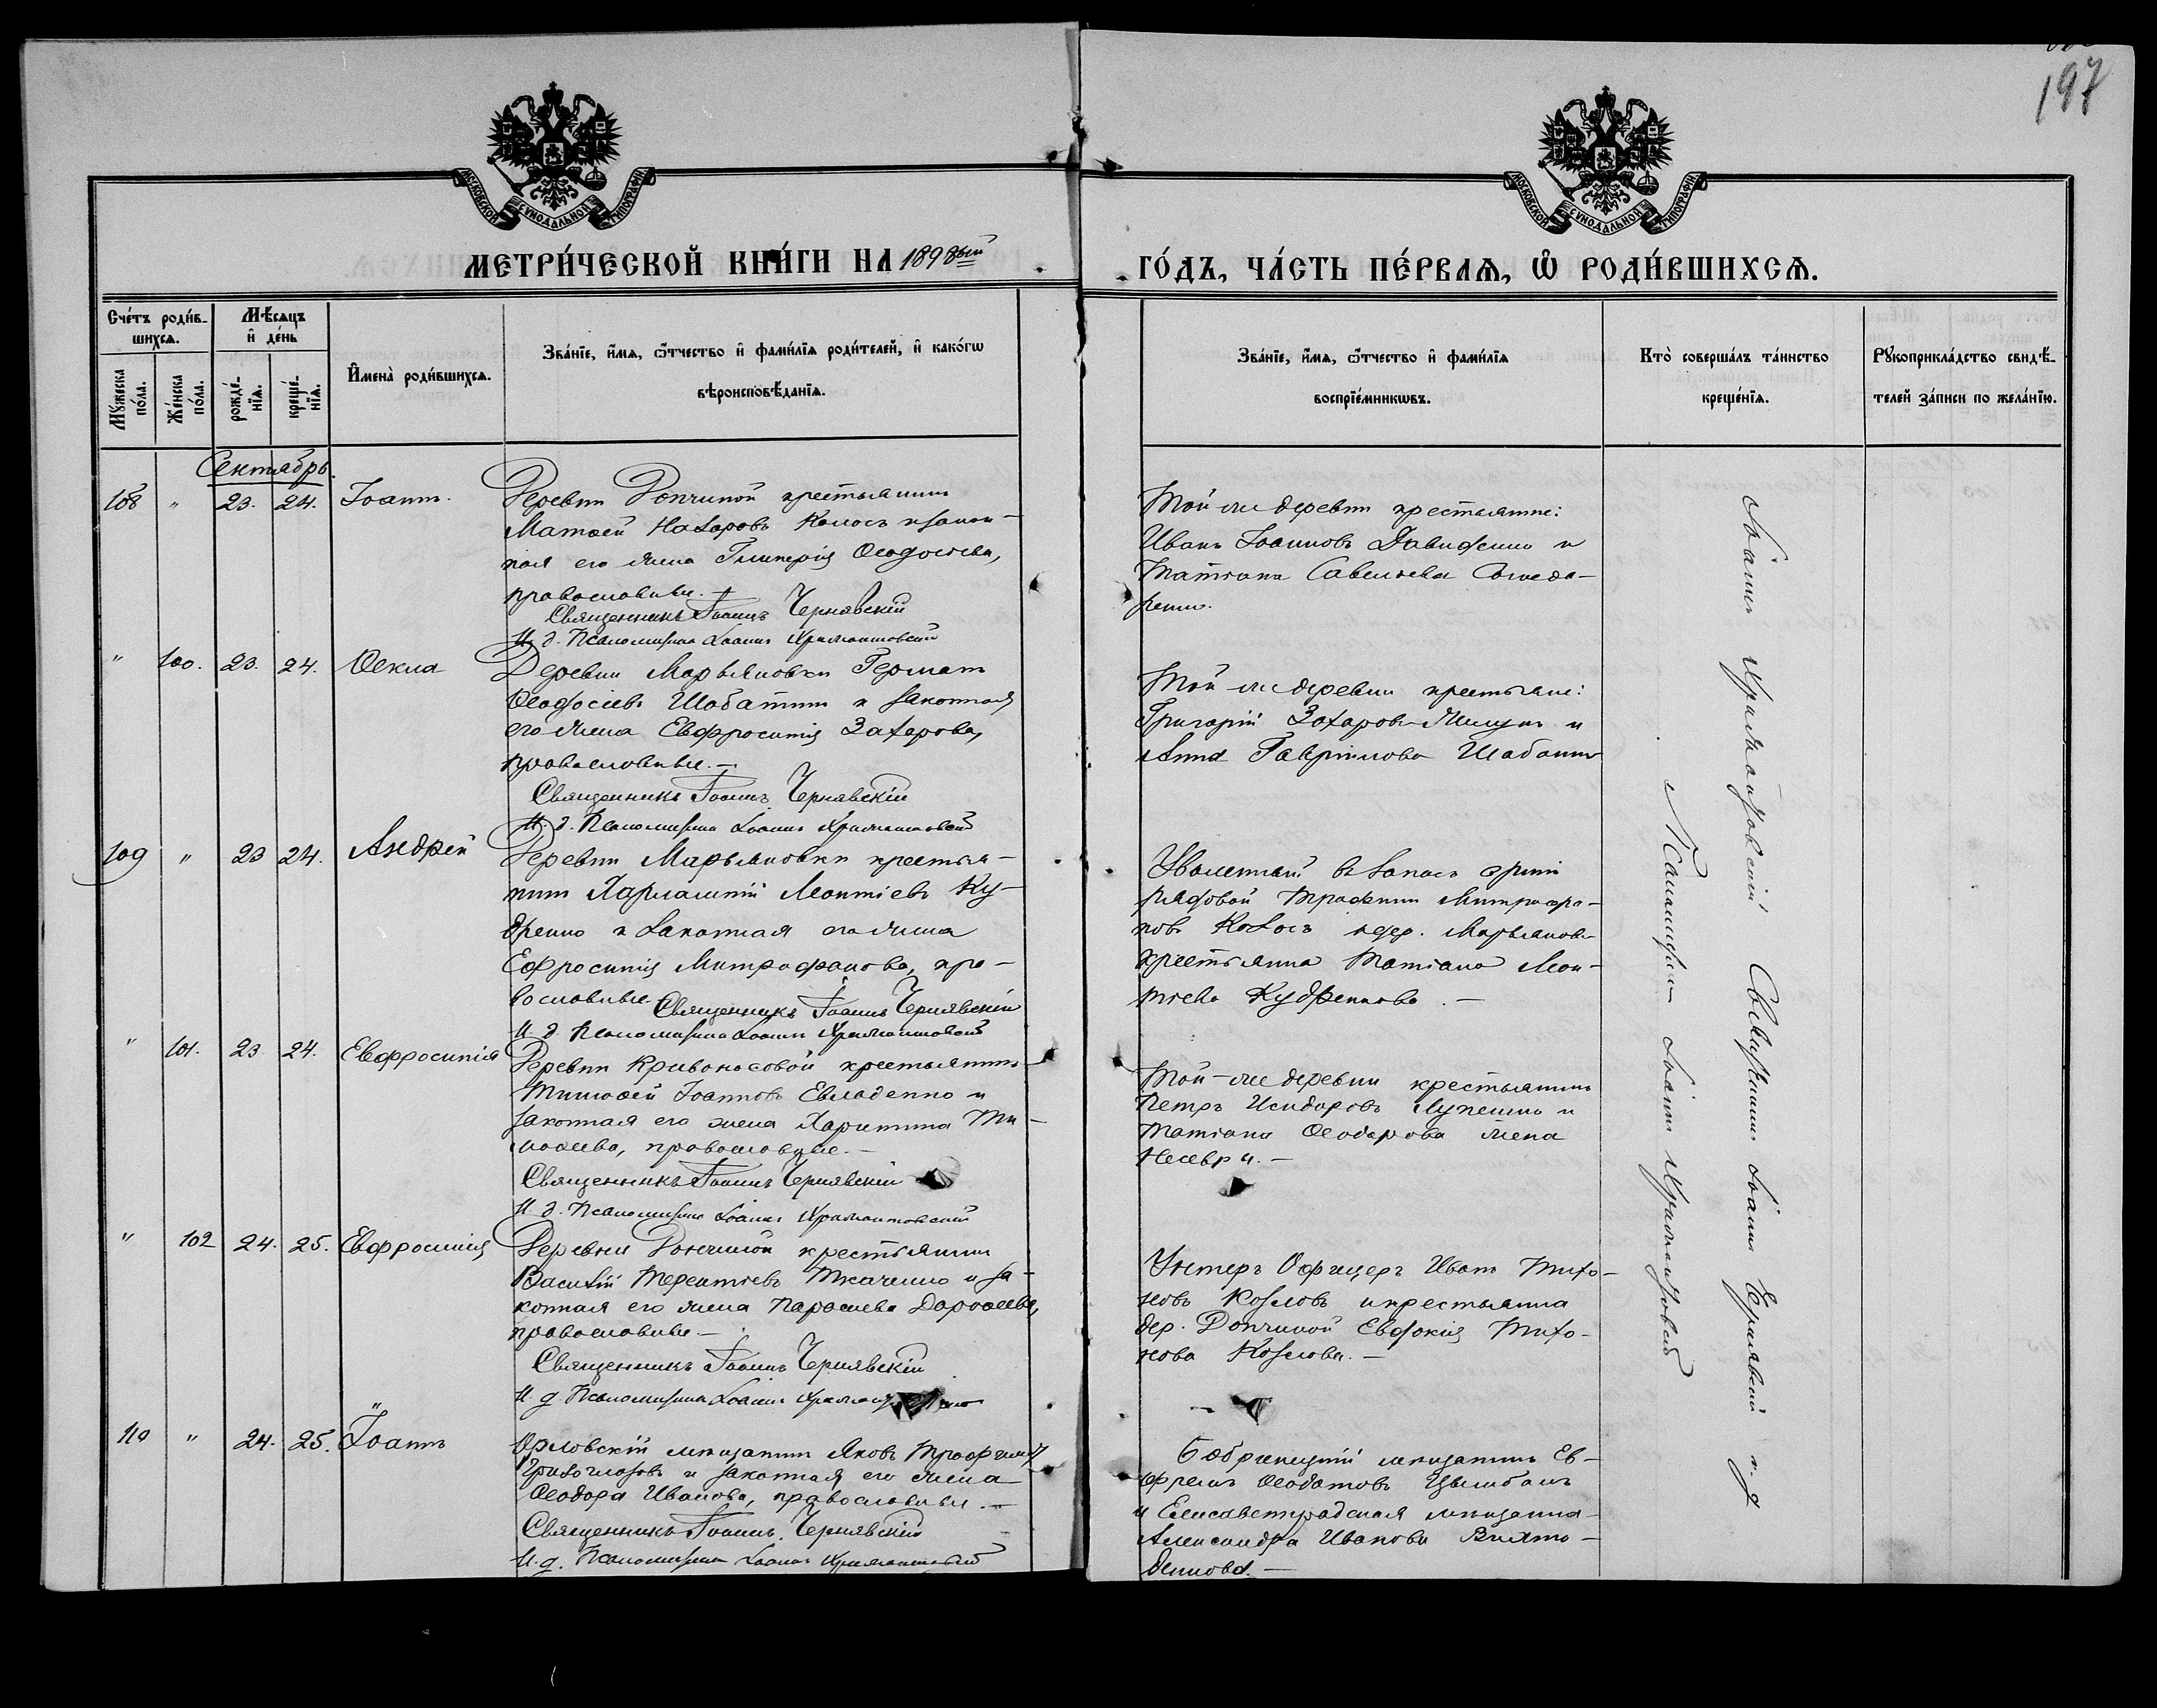 197
МОСКОВСКОЙ СѴНОДАЛЬНОЙ ТИПОГРАФІИ
МОСКОВСКОЙ СѴНОДАЛЬНОЙ ТИПОГРАФІИ
МЕТРИ́ЧЕСКОЙ КНИ́ГИ НА 1898ый
ГО́ДЪ, ЧА́СТЬ ПЕ́РВАѦ, Ѽ РОДИ́ВШИХСѦ.
Сче́тъ роди́в-
шихсѧ.
Мѣ́сѧцъ
и҆ де́нь
Му́жеска
по́ла.
Же́нска
по́ла.
рожде́-
нїѧ.
креще́-
нїѧ.
И҆мена̀ роди́вшихсѧ.
Зва́нїе, и҆́мѧ, ѻ҆́тчество и҆ фами́лїѧ роди́телей, и҆ како́гѡ
вѣроисповѣ́данїѧ.
Зва́нїе, и҆́мѧ, ѻ҆́тчество и҆ фами́лїѧ
воспрїе́мникѡвъ.
Кто̀ соверша́лъ та́инство
креще́нїѧ.
Рꙋкоприкла́дство свидѣ́-
телей за́писи по жела́нїю.
Сентябрь.
108 " 23. 24. Іоаннъ.
Деревни крестьянинъ
Матѳей Назаровъ и закон-
ная его жена Гликерія Ѳеодосіева,
православные.
Священникъ Іоаннъ Чернявскій
И. д. Псаломщика Іоаннъ
Той-же деревни крестьяне:
Иванъ Іоанновъ Давиденко и
Татіана Савельева
" 100. 23. 24. Ѳекла
Деревни Марьяновки Германъ
Ѳеодосіевъ Шабатинъ и законная
его жена Евфросинія Захарова,
православные.—
Священникъ Іоаннъ Чернявскій
И. д. Псаломщика Іоаннъ
Той-же деревни крестьяне:
Григорій Захаровъ и
Анна Гавріилова
109 " 23 24. Андрей
Деревни Марьяновки крестья-
нинъ Харлампій Леонтіевъ Ку-
дренко и законная его жена
Ефросинія Митрофанова, пра-
вославные Священникъ Іоаннъ Чернявскій
И. д. Псаломщика Іоаннъ
Уволенный въ запасъ арміи
рядовой Трофимъ Митрофа-
новъ дер. Марьяновки
крестьянка Татіана Леон-
тіева Кудренкова.—
" 101. 23. 24. Евфросинія
Деревни Кривоносовой крестьянинъ
Тимоѳей Іоанновъ Евладенко и
законная его жена Харитина Ти-
моѳеева, православные.—
Священникъ Іоаннъ Чернявскій
И. д. Псаломщика Іоаннъ
Той-же деревни крестьянинъ
Петръ Исидоровъ Лупенко и
Татіана Ѳеодорова жена
" 102 24. 25. Евфросинія
Деревни крестьянинъ
Василій Терентіевъ Ткаченко и за-
конная его жена Параскева Дороѳеева,
православные.—
Священникъ Іоаннъ Чернявскій
И. д. Псаломщика Іоаннъ
Унтеръ Офицеръ Иванъ Тихо-
новъ Козловъ и крестьянка
дер. Евдокія Тихо-
нова Козлова.—
110 " 24. 25. Іоаннъ
Орловскій мѣщанинъ Яковъ Трофимовъ
и законная его жена
Ѳеодора Иванова, православные.—
Священникъ Іоаннъ Чернявскій
И. д. Псаломщика Іоаннъ
Бобринецкій мѣщанинъ Еф-
ремъ Цымбалъ
и Елисаветградская мѣщанка
Александра Иванова
Священникъ Іоаннъ Чернявскій и. д.
Псаломщика Іоаннъ